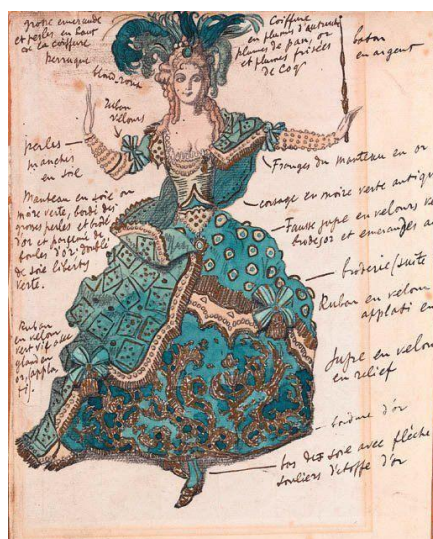 grosse emeraude
et perles en haut
de la coiffure
Perruque
blond roux
Coiffure
en plumes d'autruche
plumes de paon, or
et plumes frisées
de coq
baton
en argent
Ruban
velours
perles
manches
en soie
Franges du manteau en or
Manteau en soie ou
moire verte, bordé des
grosses perles et
d'or et parsemé de
d'or. doublé
de soie liberty
verte.
corsage en moire verte antique
Fausse jupe en velours
brodé d'or et emeraudes
broderie (suite
Ruban en velours
applati en
Ruban
en velours
vert vif avec
gland en
or, (applati
Jupe en velours
en relief
bordure d'or
bas de soie avec flèche
souliers d'étoffe d'or